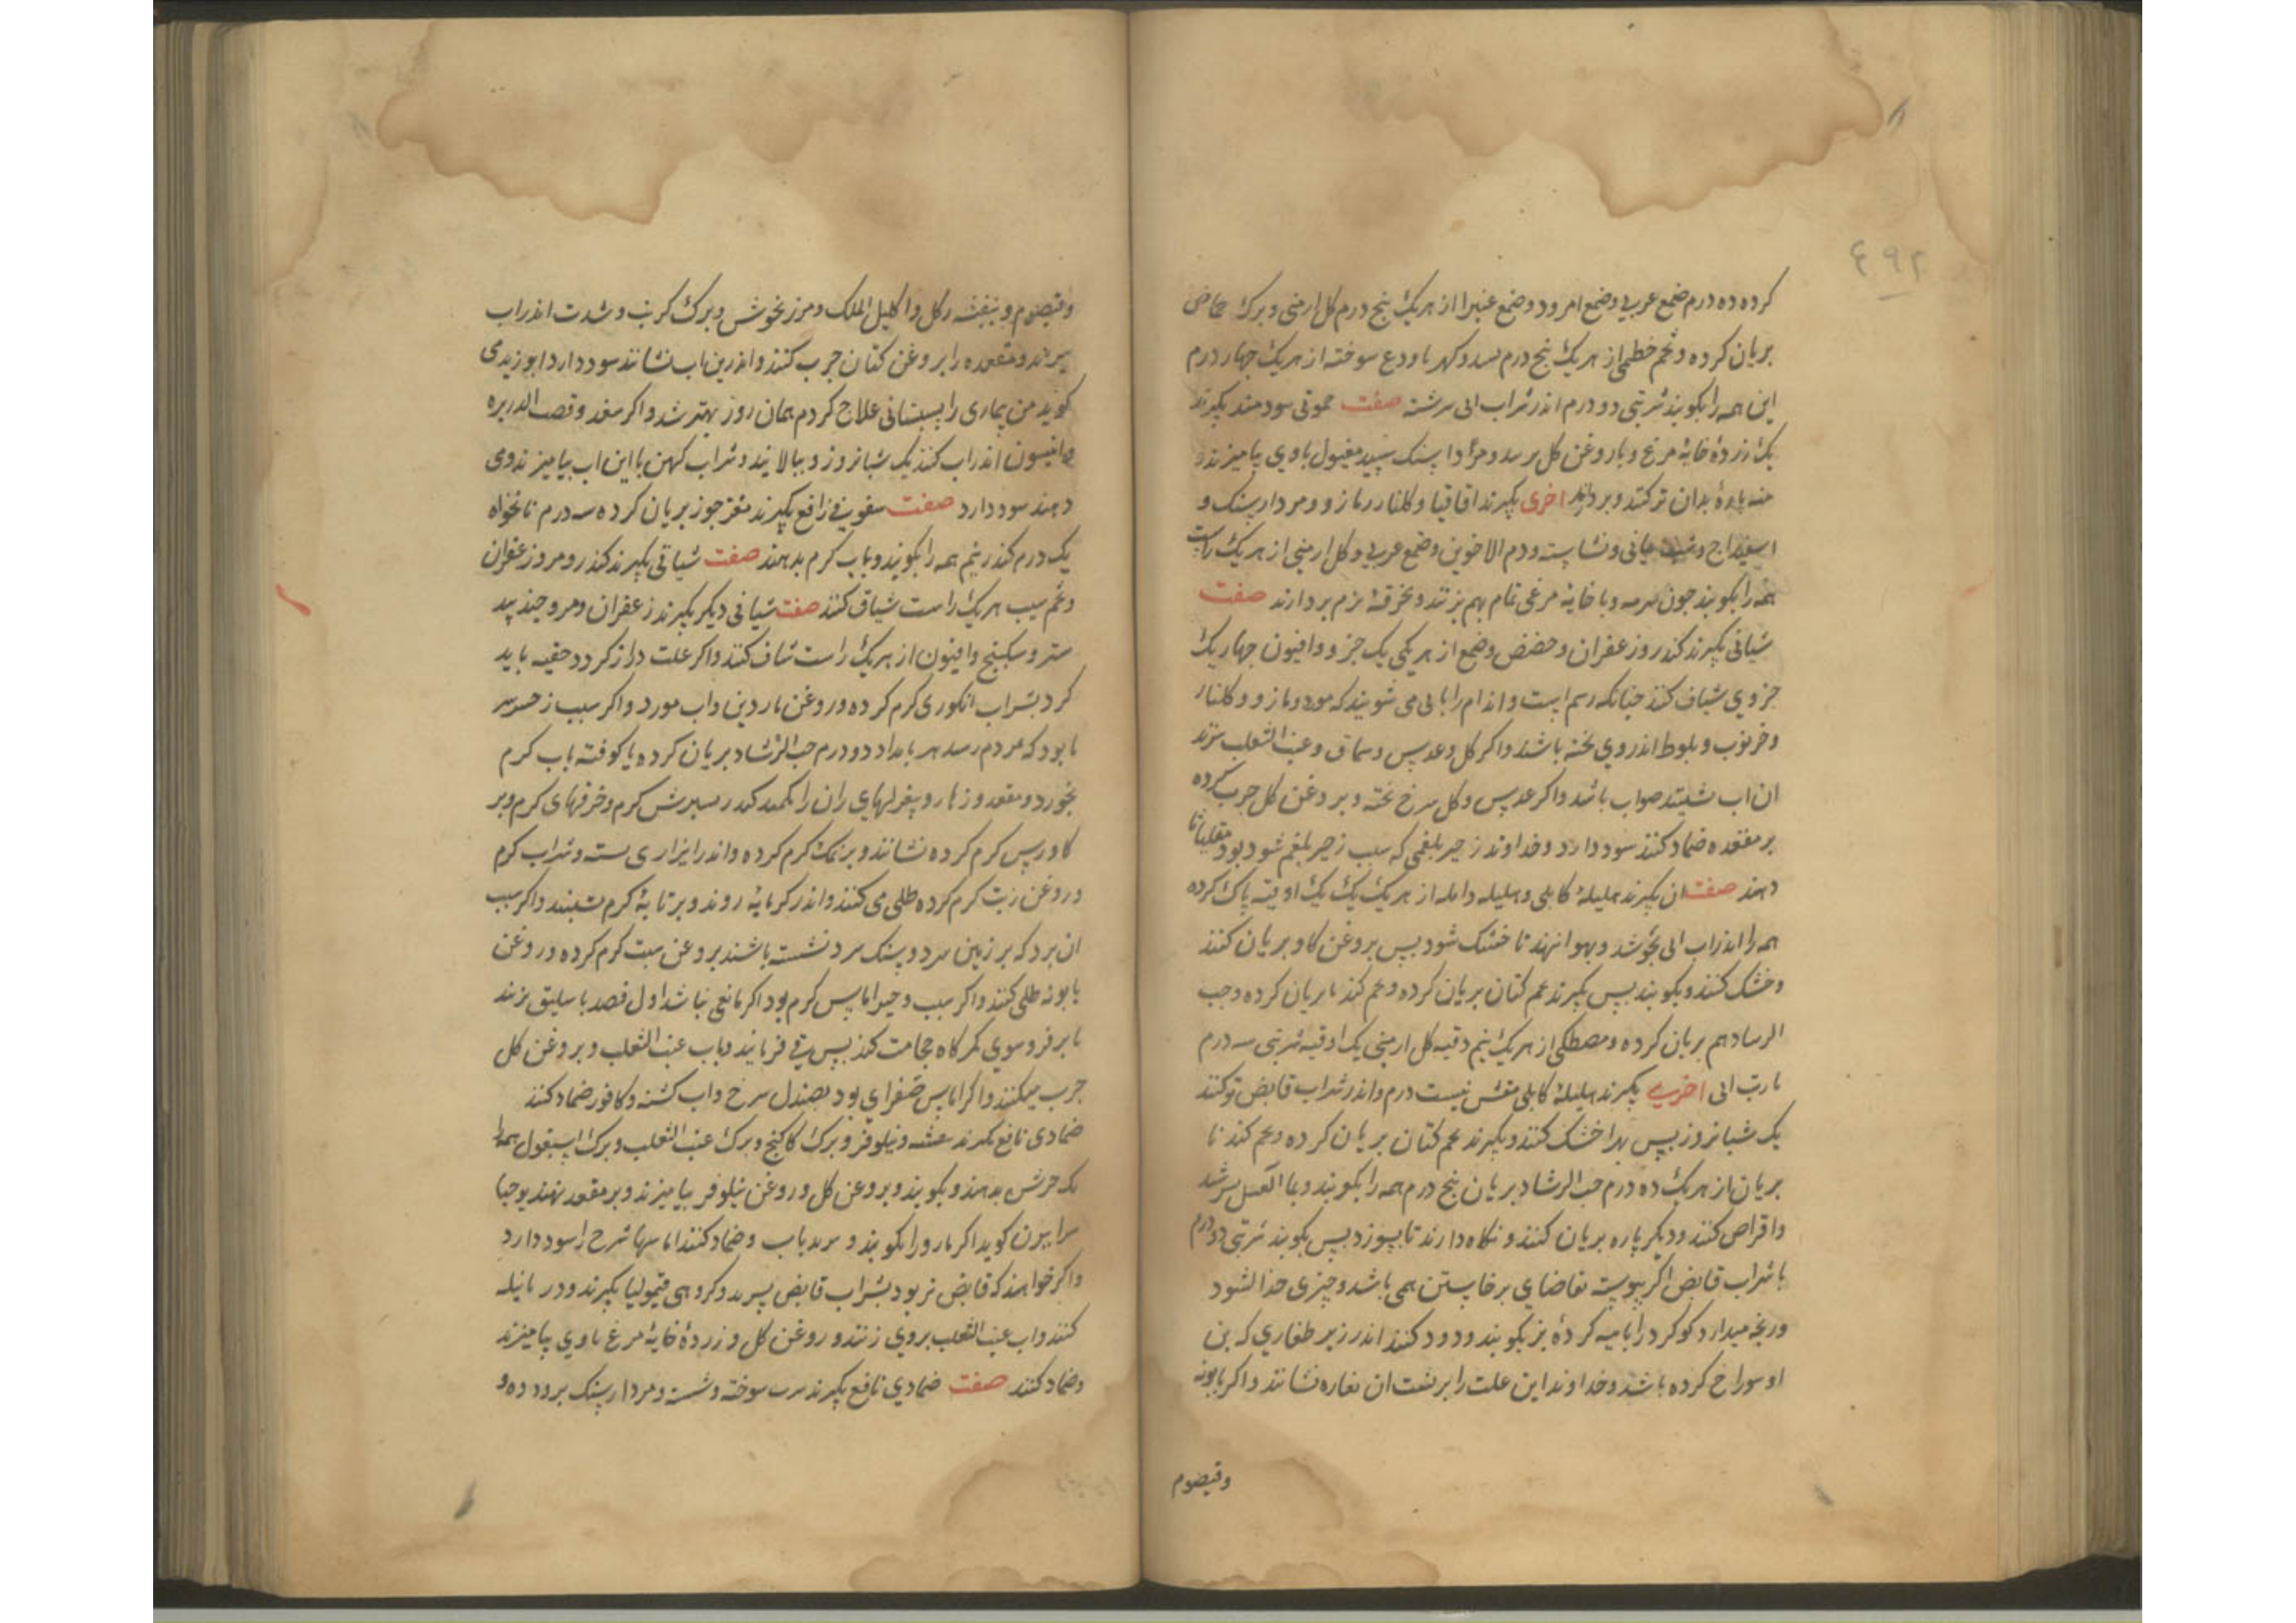 ٤٩٢
کرده ده درم صمغ عربی وصمغ امرود وصمغ غبیرا از هریک پنج درم کل ارمنی وبرک حماض
بریان کرده وتخم خطمی از هریک پنج درم بسد وکهربا ودع سوخته از هریک جهار درم
این همه را بکوبند شربتی دو درم اندر شراب ابی سرشته صفت حمولی سودمند بکیرند
یک زرده خایۀ مرغ وبا روغن کل ومرداسنک سپید مغسول باوی بیامیزند و
بدان ترکنند وبردارند اخری بکیرند اقاقیا وکلنار ومازو ومردارسنک و
اسفیداج وشب یمانی ونشاسته ودم الاخوین وصمغ عربی وکل ارمنی از هریک راست
همه را بکوبند جون سرمه وبا خایۀ مرغی تمام بهم بزنند وبخرقۀ نرم بردارند صفت
شیافی بکیرند کندر وزعفران وحضض وصمغ از هریکی یک جزو وافیون جهاریک
جزوی شیاف کنند جنانکه رسم است واندام را بابی می شویند که مورد ومازو وکلنار
وخرنوب وبلوط اندروی پخته باشند واکر کل وعدس وسماق وعنب الثعلب بپزند
ان اب شینند صواب باشد واکر عدس وکل سرخ پخته وبروغن کل جرب کرده
بر مقعده ضماد کنند سود دارد وخداوند زحیر بلغمی که سبب زحیر بلغم شود بود مقلیاثا
دهند صفت ان بکیرند هلیلۀ کابلی وبلیله وامله از هریک یک یک اوقیه پاک کرده
همه را اندر اب ابی بجوشد وبهوا نهند تا خشک شود پس بروغن کاو بریان کنند
وخشک کنند وبکوبند پس بکیرند تخم کتان بریان کرده وتخم کندنا بریان کرده وحب
الرشاد هم بریان کرده ومصطکی از هریک نیم وقیه کل ارمنی یک اوقیه شربتی سه درم
بارب ابی اخری بکیرند هلیلۀ کابلی مقشر بیست درم واندر شراب قابض ترکنند
یک شبانروز پس بدر خشک کنند وبکیرند تخم کتان بریان کرده وتخم کندنا
بریان از هریک ده درم حب الرشاد بریان پنج درم همه را بکوبند وبما العسل بسرشند
واقراص کنند ودیکرباره بریان کنند ونکاه دارند تا بسوزد پس بکوبند شربتی دو درم
با شراب قابض اکر پیوسته تقاضای برخاستن همی باشد وچیزی جدا نشود
ورنجه میدارد کوکرد را با پیه کردۀ بز بکوبند ودود کنند اندر زیر طغاری که بن
او سوراخ کرده باشد وخداوند این علت را بر پشت ان تغاره نشانند واکر بابونه
وقیصوم
وقیصوم وبنفشه وکل واکلیل الملک ومرزنخوش وبرک کرنب وشبت اندر اب
بپزند ومقعده را بروغن کتان جرب کنند واندرین اب نشانند سود دارد ابو زید می
کوید من بیماری را بسپستانی علاج کردم همان روز بهتر شد واکر سعد وقصب الذریره
وانیسون اندر اب کنند یک شبانروز وببالایند وشراب کهن با این اب بیامیزند ومی
دهند سود دارد صفت سفوفی نافع بکیرند مغز جوز بریان کرده سه درم نانخواه
یک درم کندر نیم همه را بکوبند وباب کرم بدهند صفت شیافی بکیرند کندر ومر وزعفران
وتخم سیب هریک راست شیاف کنند صفت شیافی دیکر بکیرند زعفران ومر وجندبید
ستر وسکبینج وافیون از هریک راست شیاف کنند واکر علت دراز کردد حقنه باید
کرد بشراب انکوری کرم کرده وروغن ناردین واب مورد واکر سبب زحیر
بود که مردم رسد هر بامداد دو درم حب الرشاد بریان کرده یا کوفته باب کرم
بخورد ومقعد وزهار وپیغولهای ران را تکمید کند سبوس کرم وخرقهای کرم وبر
کاورس کرم کرده نشانند وبر نمک کرم کرده واندر ایزاری بسته وشراب کرم
وروغن زیت کرم کرده طلی می کنند واندر کرمابه روند وبر تابۀ کرم نشینند واکر سبب
ان بود که بر زمین سرد وسنک سرد نشسته باشند بروغن شبت کرم کرده وروغن
بابونه طلی کنند واکر سبب زحیر اماس کرم بود اکر مانعی نباشد اول فصد باسلیق بزنند
یا بر فروسوی کمرکاه حجامت کنند پس قی فرمایند وباب عنب الثعلب وبروغن کل
جرب میکنند واکر اماس صفرای بود بصندل سرخ واب کشنه وکافور ضماد کنند
ضمادی نافع بکیرند بنفشه ونیلوفر وبرک کاکنج وبرک عنب الثعلب وبرک اسبغول همه را
یک جوش بدهند وبکوبند وبروغن کل وروغن نیلوفر بیامیزند وبر مقعد نهند یوحنا
سرابیون کوید اکر مارو را بکوبند وباب وضماد کنند اماسها شرج را سود دارد
واکر خواهند که قابض تر بود بشراب قابض بسرند وکروهی قیمولیا بکیرند ودر
کنند واب عنب الثعلب بروی زنند وروغن کل وزردۀ خایۀ مرغ باوی بیامیزند
وضماد کنند صفت ضمادی نافع بکیرند سرب سوخته وشسته ومردارسنک پرورده و